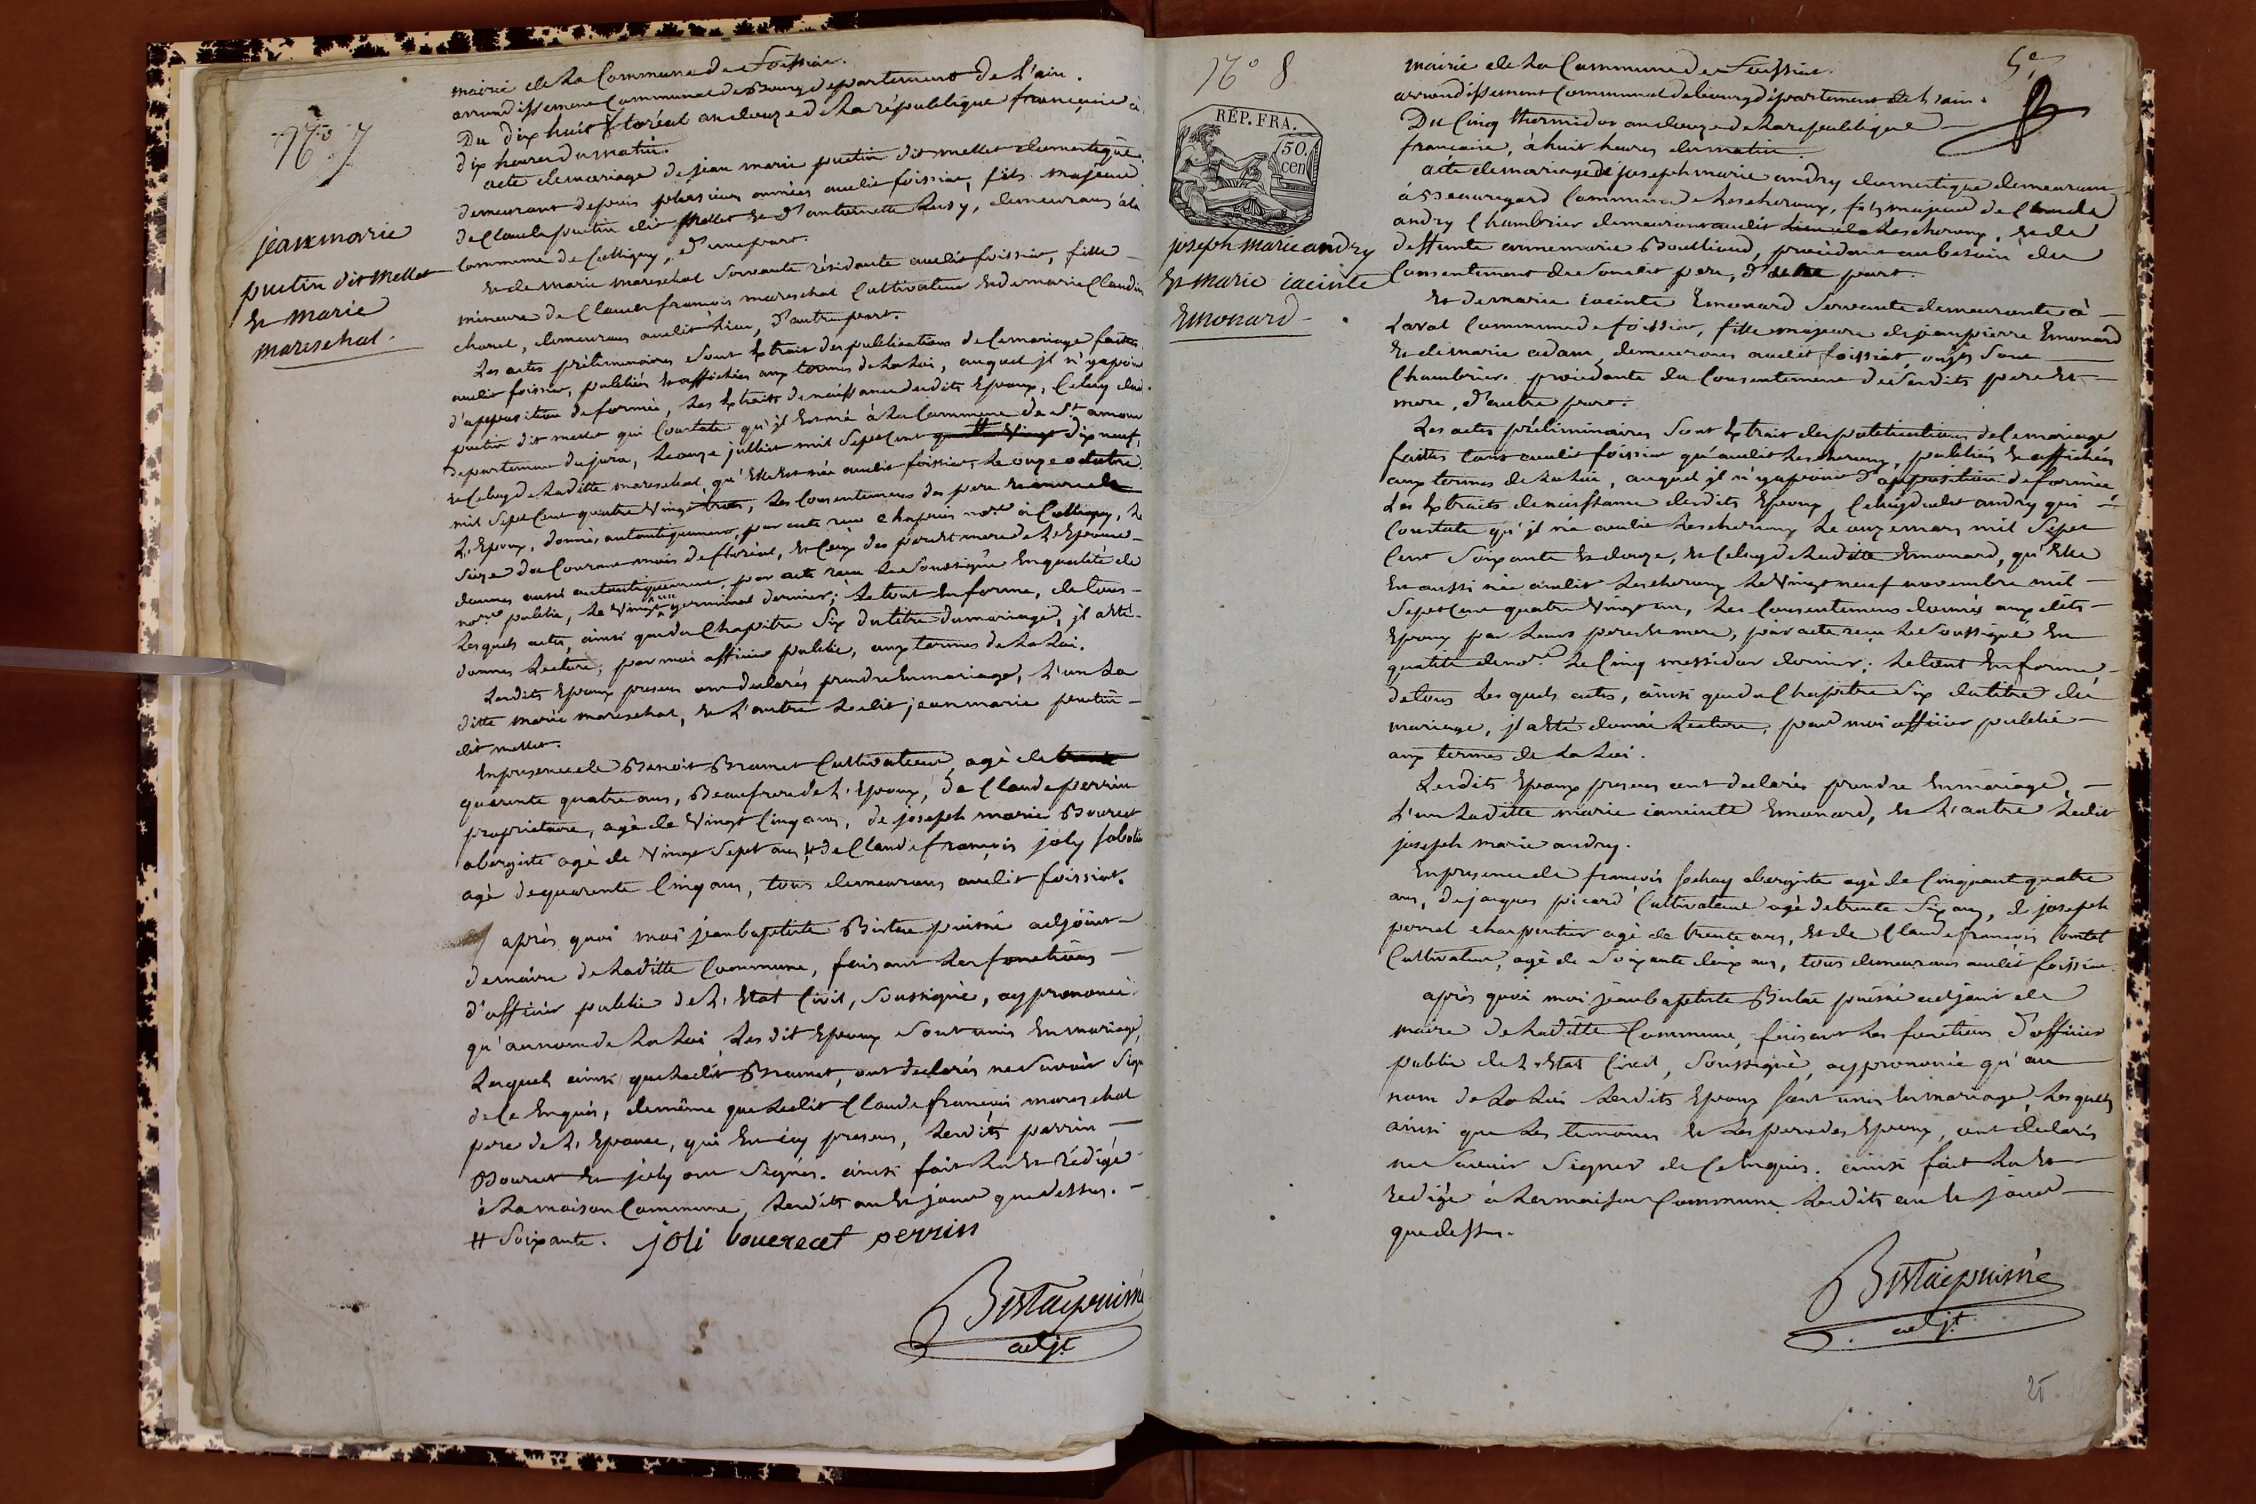 N.o 7
jean marie
putin dit mellet
et marie
mareschal.
mairie de la Commune de foissiat.
arrondissement Communal de Bourg departement de L'ain.
Du dix huit floréal an douze de la république française à
dix heures du matin.
acte de mariage de jean marie putin dit mellet domestique
demeurant depuis plusieurs années audit foissiat, fils majeur
de Claude putin dit Mellet et d'antoinette, demeurans à la
Commune de Colligny, d'une part.
et de marie mareschal Servante résidante audit foissiat, fille
mineure de Claude françois mareschal Cultivateur et de marie Claudine
charel, demeurans audit Lieu, d'autre part.
Les actes préliminaires sont Extrait des publications de ce mariage faittes
audit foissiat, publiées et affichées aux termes de la Loi, auquel jl n'y a point
d'apposition de formée, Les Extraits de naissance desdits Epoux, Celuy dud.
putin dit mellet qui Constate qu'jl est né à la Commune de St amour
departement du jura, Le onze juillet mil Sept Cent dix neuf,
et Celuy de Laditte mareschal, qu'Elle Est née audit foissiat, Le onze octobre
mil Sept Cent quatre Vingt trois, Les Consentemens des pere
L'Epoux, donnés autantiquement, par acte reçu Chapuis no.re à Colligny, Le
Sieze du Courant mois de floréal, et Ceux des pere et mere de L'Epouse
donnés aussi autentiquement, par acte reçu Le Soussigné En qualité de
no.re public, Le Vingt un germinal dernier; Le tout En forme, de tous
Lesquels actes, ainsi que du Chapitre Six du titre du mariage, jl a Eté
donnée Lecture, par moi officier public, aux termes de la Loi.
Lesdits Epoux presens ont declarés prendre En mariage, L'un La
ditte marie mareschal, et L'autre Ledit jean marie putin
dit mellet.
En presence de Benoit Bramet Cultivateur, agé de
quarante quatre ans, Beaufrere de L'Epoux, de Claude perrin
proprietaire, agé de Vingt Cinq ans, de joseph marie Bouret
abergiste agé de Vingt Sept ans # de Claude françois joly Sabotier
agé de quarante Cinq ans, tous demeurans audit foissiat.
après quoi moi jean baptiste Bistac puisné adjoint
de maire de laditte Commune, faisant les fonctions
d'officier public de L'Etat Civil, Soussigné, ay prononcé
qu'au nom de la Loi Les dit Epoux sont unis En mariage,
Lesquels ainsi que Ledit Bramet, ont declarés ne Savoir Signer
de ce Enquis, de même que Ledit Claude françois mareschal
pere de L'Epouse, qui Est icy present, Lesdits perrin
Bouret et joly ont Signés. ainsi fait Lu et rédigé
à La maison Commune, Lesdits an et jour que dessus.
# Soixante. joli boueret perrin
Bistac puisné
adjt
N.o 8
5e
RÉP. FRA.
50 cen
joseph marie andry
et marie iacinte
Emonard
mairie de la Commune de foissiat.
arrondissement Communal de bourg département de L'ain.
Du Cinq thermidor an douze de la republique
francaise, à huit heures du matin.
acte de mariage de joseph marie andry domestique demeurant
à Beauregard Commune de Lescheroux, fils majeur de Claude
andry Chambrier demeurant audit Lescheroux, et de
deffunte anne marie Boulliaud, procédant au besoin du
Consentement de Sondit pere, d'une part.
et de marie iacinte Emonard Servante demeurante à
Laval Commune de foissiat, fille majeure de jean pierre Emonard
et de marie adam, demeurans audit foissiat, où jls sont
Chambriers. procedante du Consentement de Sesdits pere et
mere, d'autre part.
Les actes préliminaires sont Extrait des publications de ce mariage
faittes tant audit foissiat qu'audit Lescheroux, publiées et affichées
aux termes de la Loi, auquel jl n'y a point d'apposition de formée,
Les Extraits de naissance desdits Epoux, Celuy dudit andry qui
Constate qu'jl né audit Lescheroux Le onze mars mil Sept
Cent Soixante et douze, et Celuy de Laditte Emonard, qu'Elle
Est aussi née audit Lescheroux Le Vingt neuf novembre mil
Sept Cent quatre Vingt un, Les Consentemens donnés aux dits
Epoux par Leurs pere et mere, par acte reçu Le Soussigné En
qualité de no.re Le Cinq messidor dernier; Le tout En forme
de tous Les quels actes, ainsi que du Chapitre Six du titre du
mariage, jl a Eté donné Lecture, par moi officier public
aux termes de la Loi.
Lesdits Epoux presens ont declarés prendre En mariage,
L'un Laditte marie iancinte Emonard, et L'autre Ledit
joseph marie andry.
En presence de françois Sochay abergiste agé de Cinquant quatre
ans, de jacques picard Cultivateur agé de trente Six ans, de joseph
perret charpentier agé de trente ans, et de Claude françois Comtet
Cultivateur, agé de Soixante deux ans, tous demeurans audit foissiat.
après quoi moi jean baptiste Bistac puisné adjoint de
maire de laditte Commune, faisant les fonctions d'officier
public de L'Etat Civil, Soussigné, ay prononcé qu'au
nom de la Loi Lesdits Epoux sont unis En mariage, Lesquels
ainsi que Les temoins et Les peres des Epoux, ont declarés
ne Savoir Signer de Ce Enquis. ainsi fait Lu et
redigé à La maison Commune Lesdits an et jour
que dessus.
Bistac puisné
adjt
25